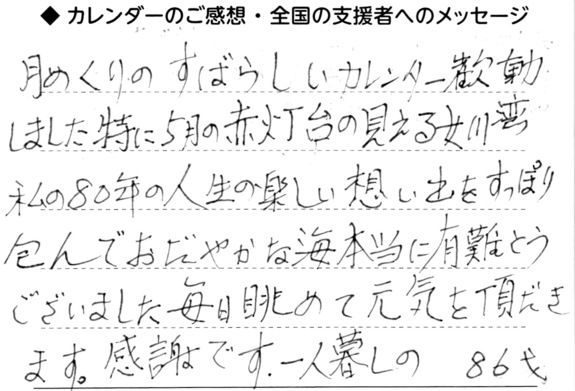 ◆ カレンダーのご感想・全国の支援者へのメッセージ
月めくりの すばらしいカレンダー歓動
しました特に5月の赤灯台の見える女川湾
私の80年の人生の楽しい想い出をすっぽり
包んでおだやかな海本当に有難とう
ございました毎日眺めて元気を頂だき
ます。感謝です.一人暮しの 86代